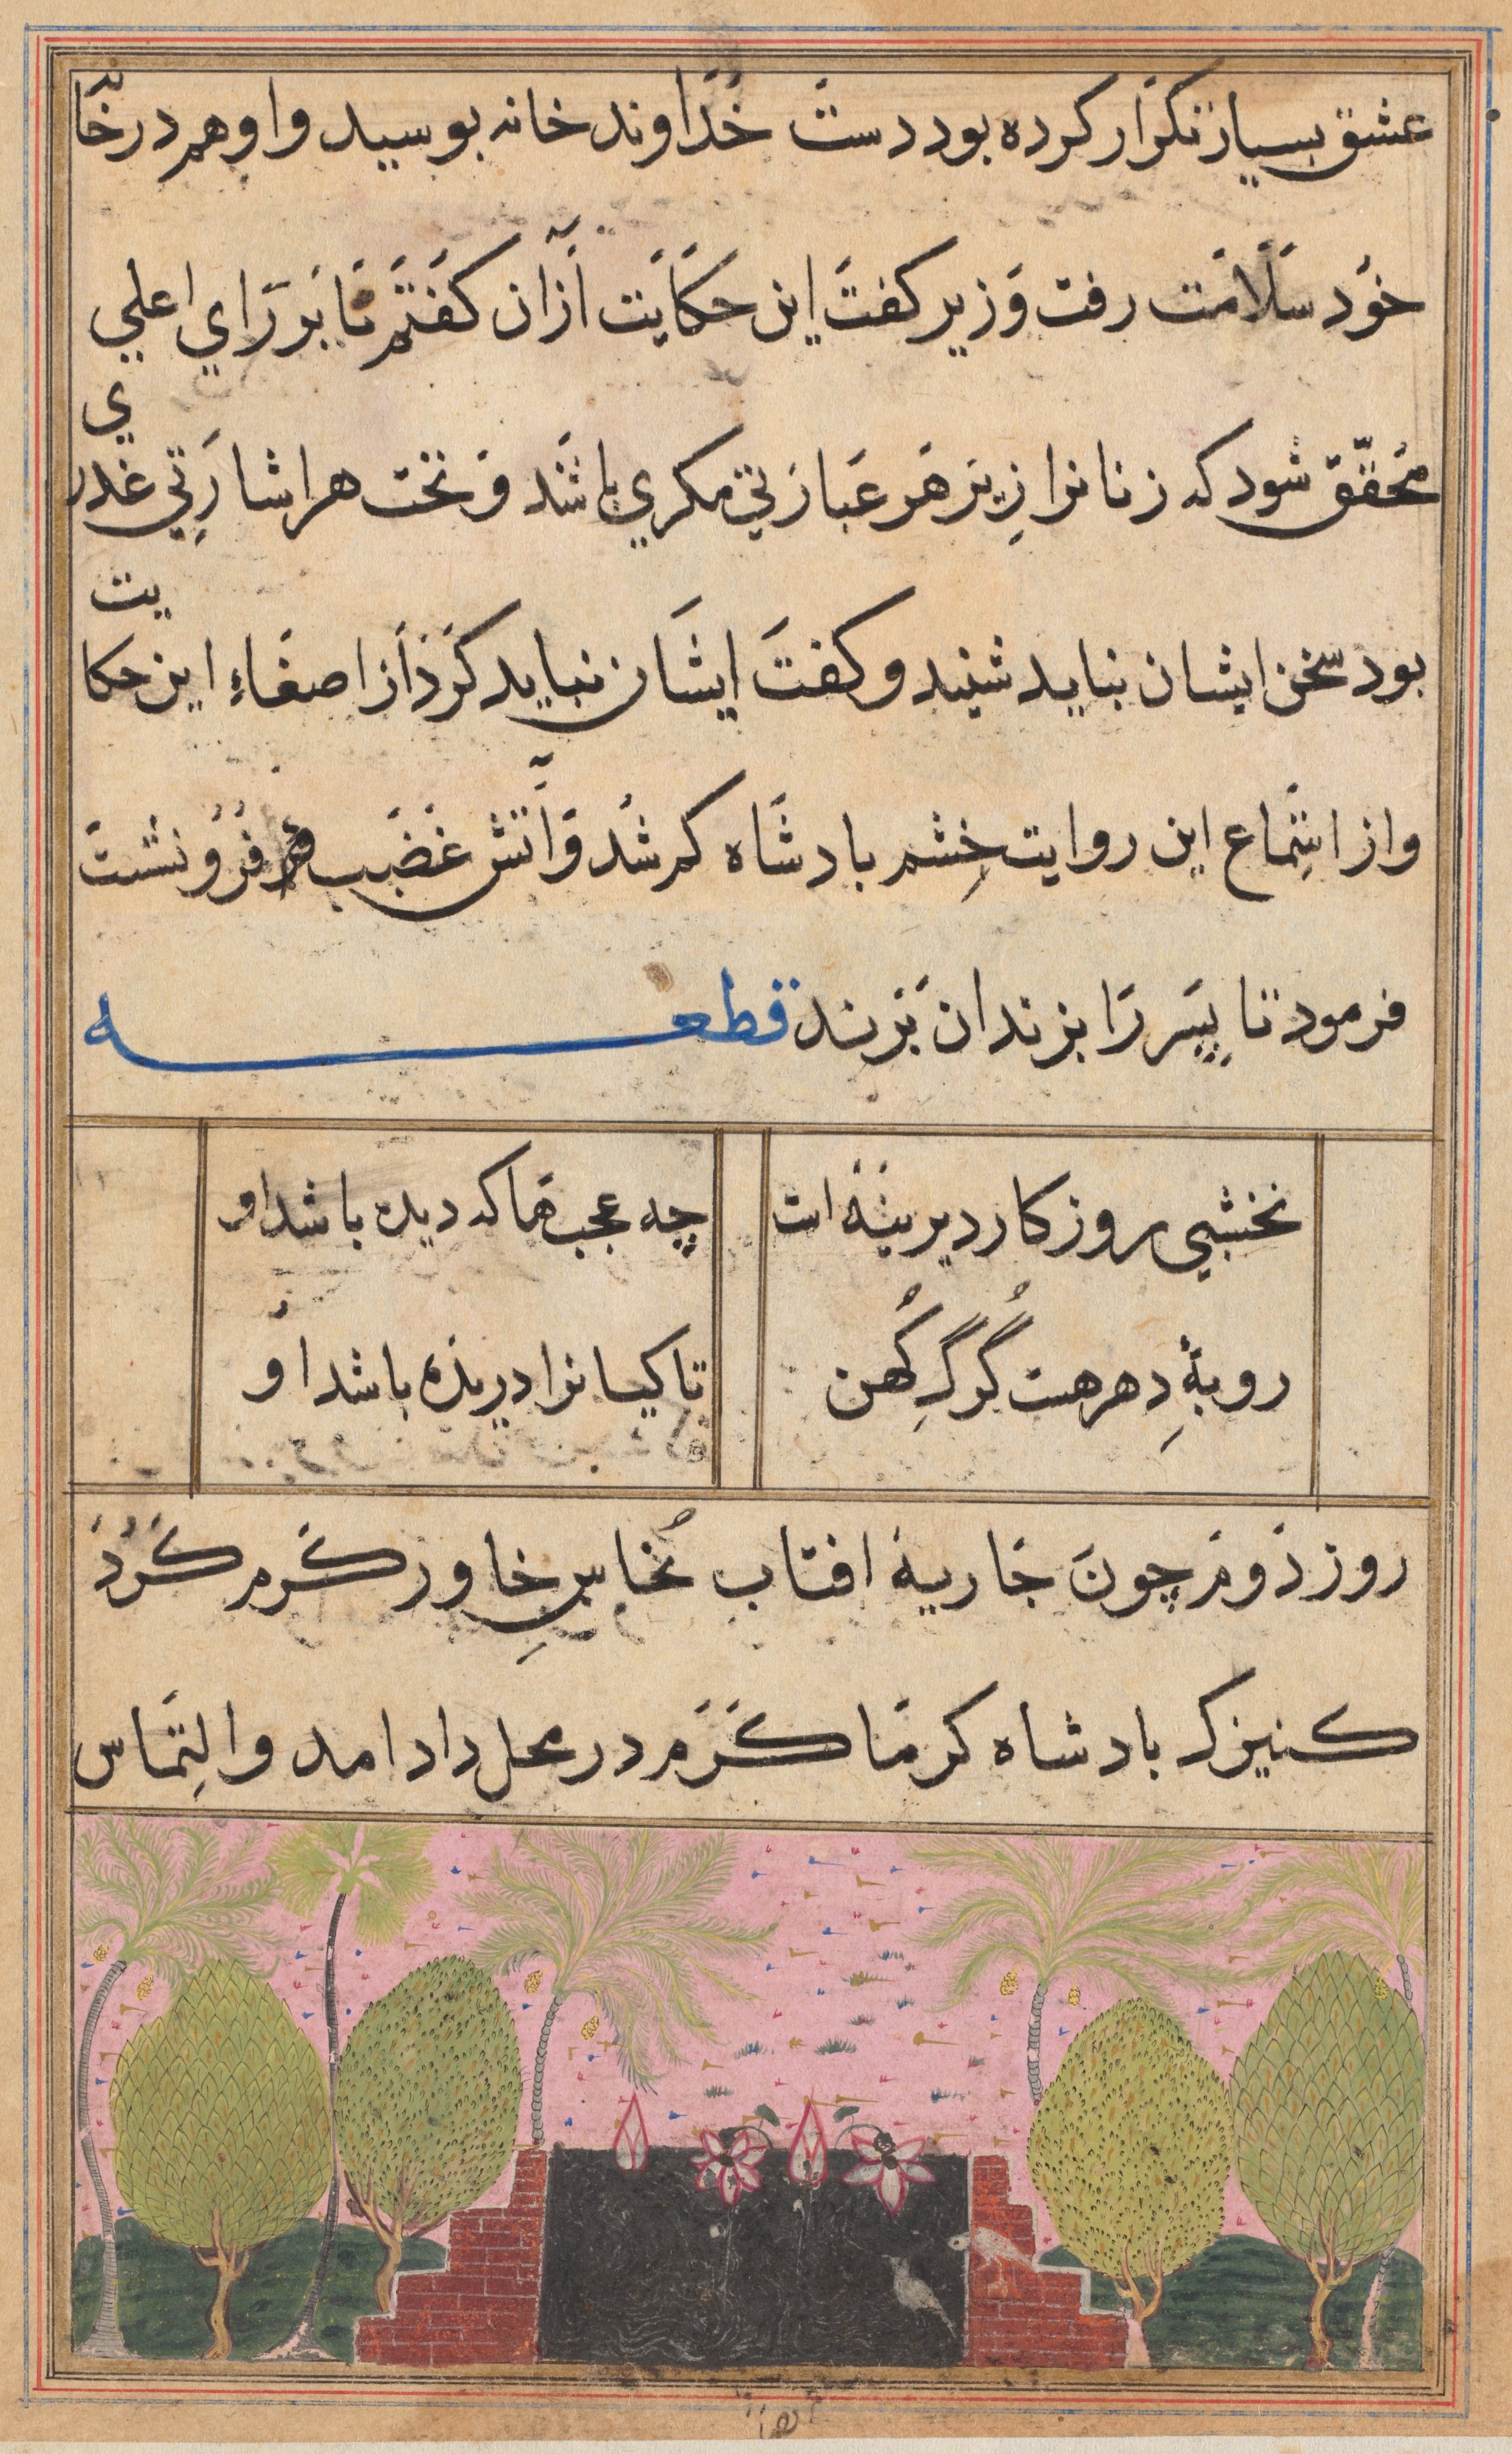 عشق بسیار تکرار کرده بود دست خداوند خانه بوسید و او هم در خا
خود سلامت رفت وزیر کفت این حکایت ازآن کفتم تا بر رای اعلی
محقّق شود که زنانرا زیر هر عبارتی مکری باشد و تحت هر اشارتی غدری
بود سخن ایشان نباید شنید و کفت ایشان نباید کرد از اصغاءِ این حکایت
و از استماع این روایت خشم بادشاه کم شد و آتش غضب فرو نشست
فرمود تا پسر را بزندان بزند قطعه
نخشبی روزکار دیرینهٔ است چه عجبها که دیده باشد او
روبهٔ دهر هست گرگِ کُهن تا کیانرا دریده باشد او
روز دوم چون جاریهٔ افتاب نخاسِ خاور کرم کرد
کنیزک بادشاه کرما کرم در محل داد امد و التماس